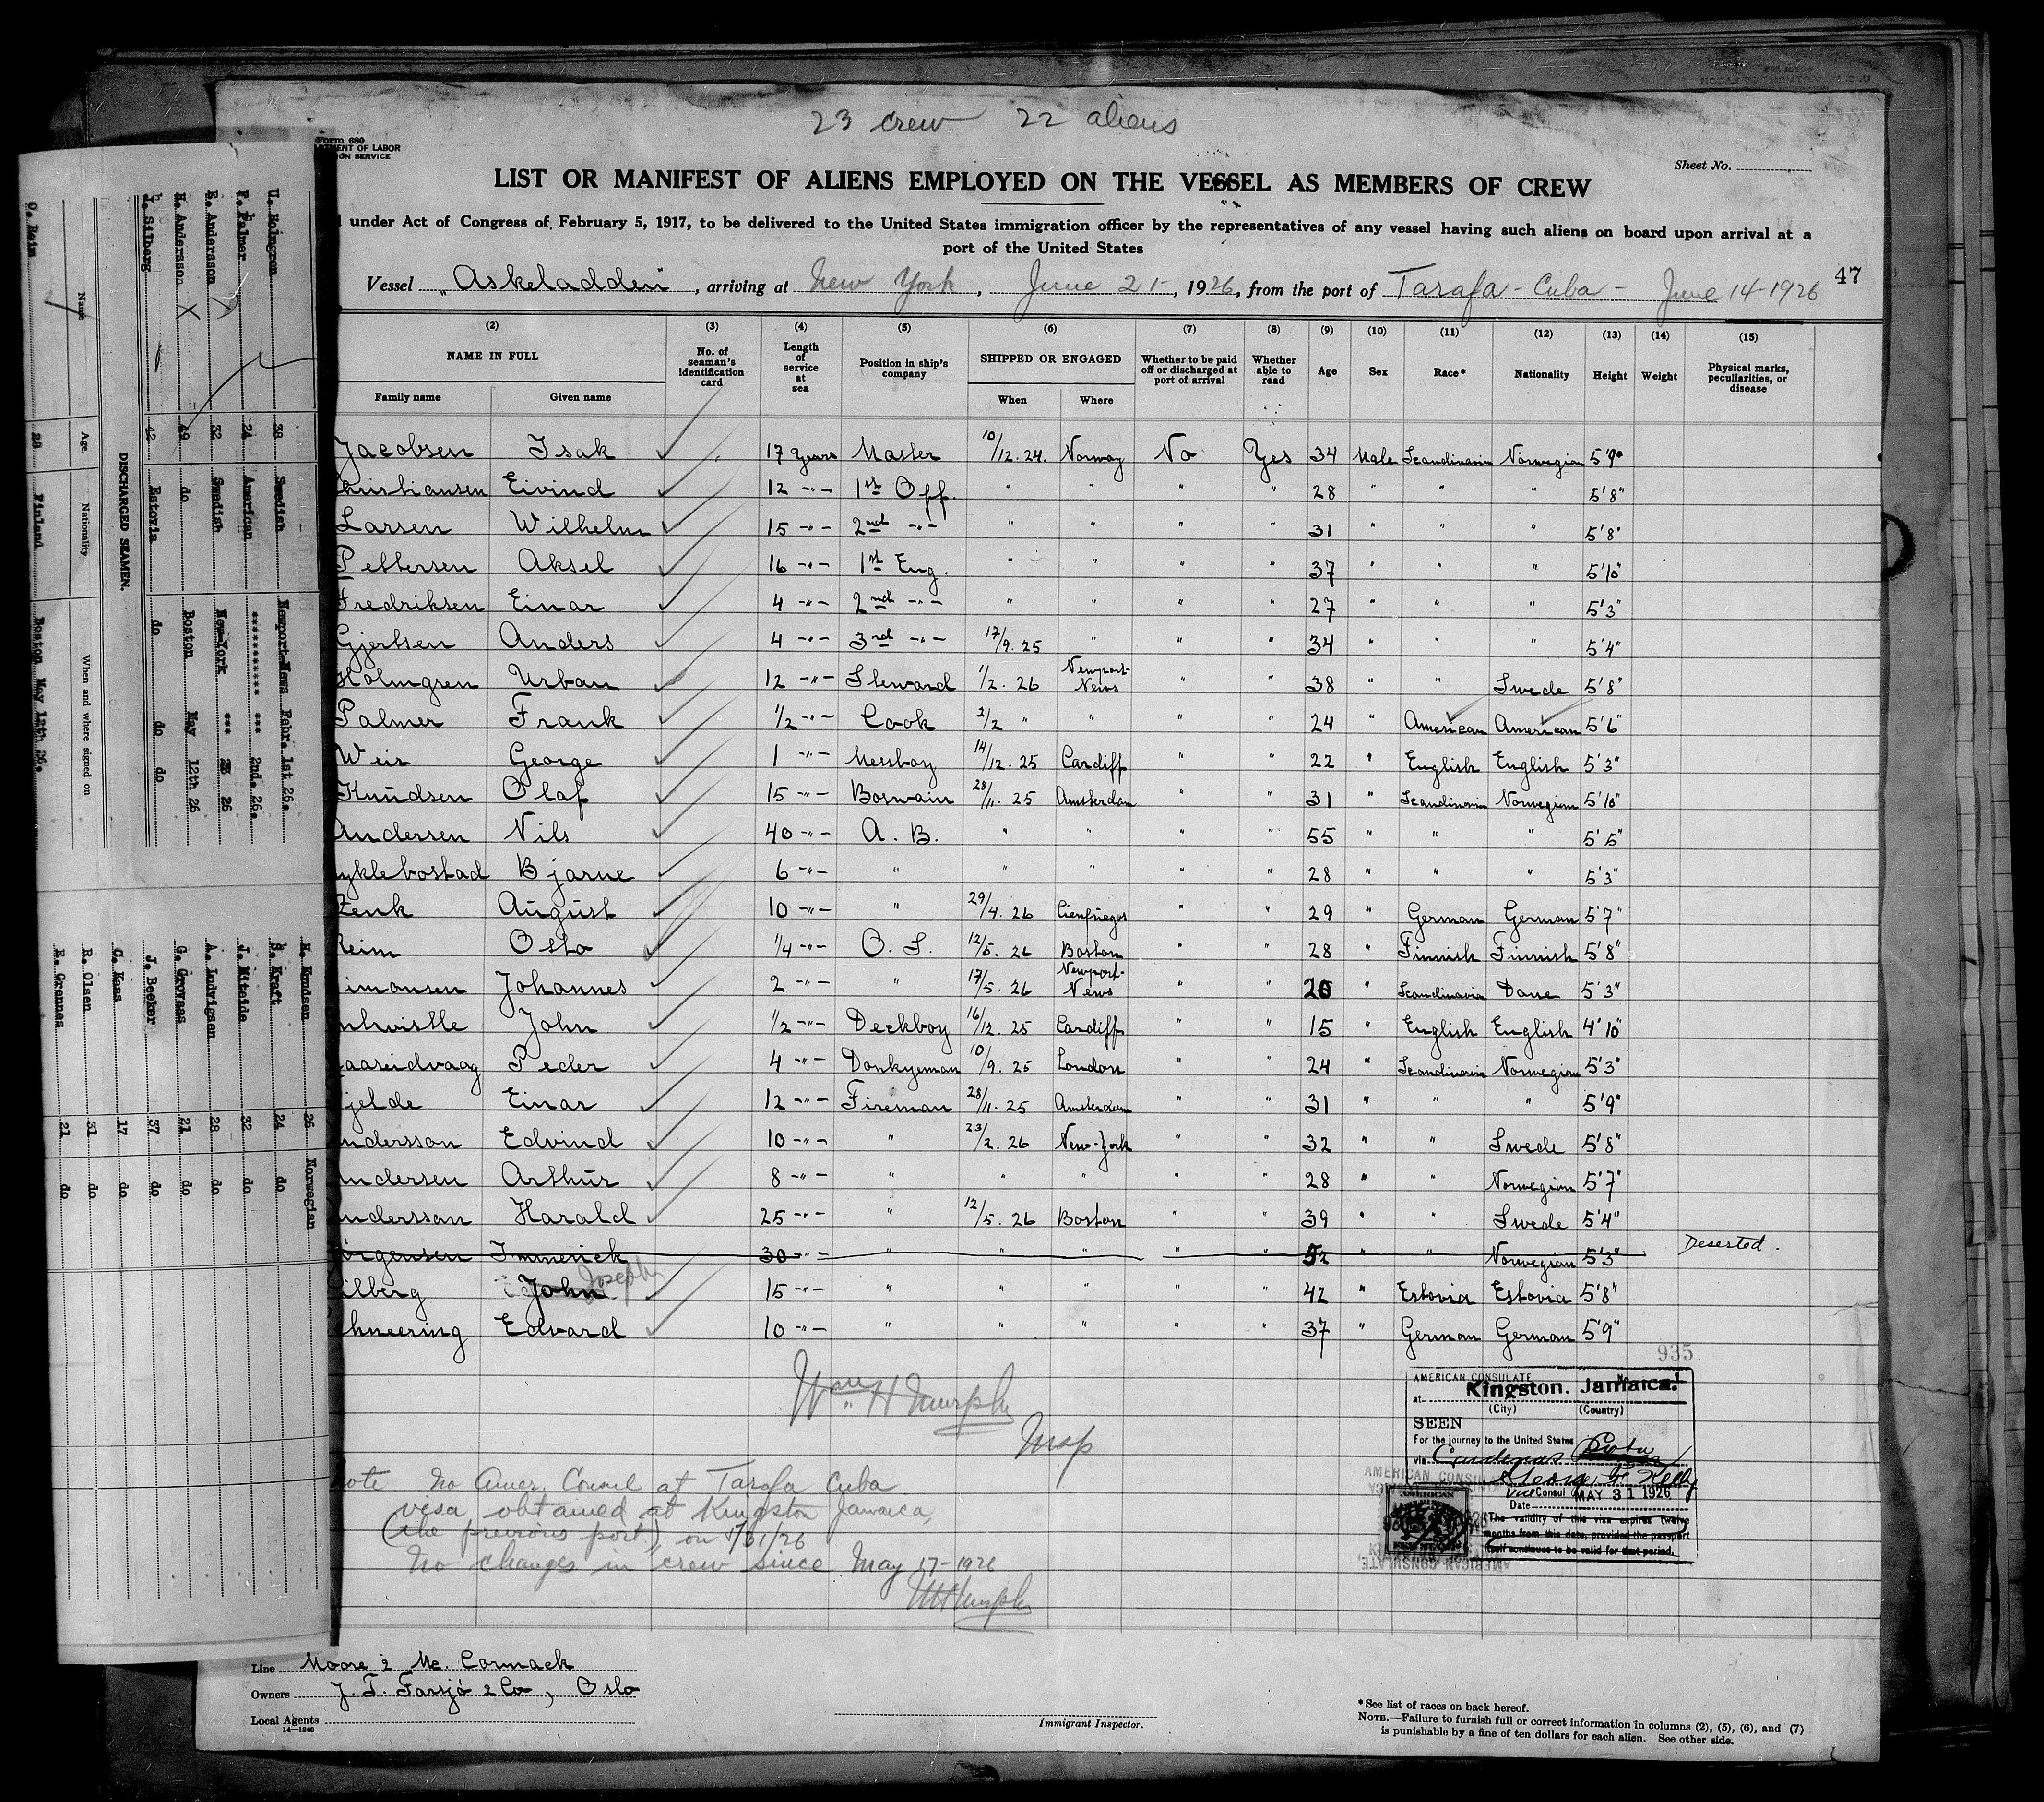 23 crew 22 aliens
Form 680
MENT OF LABOR
ION SERVICE
Sheet No.
LIST OR MANIFEST OF ALIENS EMPLOYED ON THE VESSEL AS MEMBERS OF CREW
under Act of Congress of February 5, 1917, to be delivered to the United States immigration officer by the representatives of any vessel having such aliens on board upon arrival at a
port of the United States
47
Vessel „Askeladden", arriving at New York, June 21, 1926, from the port of Tarafa - Cuba - June 14-1926
(2) (3) (4) (5) (6) (7) (8) (9) (10) (11) (12) (13) (14) (15)
NAME IN FULL
Family name Given name
No. of seaman's identification card
Length of service at sea
Position in ship's company
SHIPPED OR ENGAGED
When Where
Whether to be paid off or discharged at port of arrival
Whether able to read
Age
Sex
Race*
Nationality
Height
Weight
Physical marks, peculiarities, or disease
Jacobsen Isak 17 years Master 10/12.24. Norway No Yes 34 Male Scandinavia Norwegian 5'9"
hristiansen Eivind 12 -"- 1st Off. " " " " 28 " " " 5'8"
Larsen Wilhelm 15 -"- 2nd -"- " " " " 31 " " " 5'8"
Pettersen Aksel 16 -"- 1st Eng. " " " " 37 " " " 5'10"
Fredriksen Einar 4 -"- 2nd -"- " " " " 27 " " " 5'3"
Gjertsen Anders 4 -"- 3rd -"- 17/9.25 " " " 34 " " " 5'4"
Holmgren Urban 12 -"- Steward 1/2.26 Newport-News " " 38 " " Swede 5'8"
Palmer Frank 1/2 -"- Cook 2/2 " " " " 24 " American American 5'6"
Weir George 1 -"- Messboy 14/12.25 Cardiff " " 22 " English English 5'3"
Knudsen Olaf 15 -"- Boswain 28/11.25 Amsterdam " " 31 " Scandinavia Norwegian 5'10"
Andersen Nils 40 -"- A.B. " " " " 55 " " " 5'5"
yklebostad Bjarne 6 -"- " " " " " 28 " " " 5'3"
Zenk August 10 -"- " 29/4.26 Cienfuegos " " 29 " German German 5'7"
Reim Otto 1/4 -"- O.S. 12/5.26 Boston " " 28 " Finnish Finnish 5'8"
imonsen Johannes 2 -"- " 17/5.26 Newport-News " " 20 " Scandinavia Dane 5'3"
nhvistle John 1/2 -"- Deckboy 16/12.25 Cardiff " " 15 " English English 4'10"
aaseidvaag Peder 4 -"- Donkyeman 10/9.25 London " " 24 " Scandinavia Norwegian 5'3"
jelde Einar 12 -"- Fireman 28/11.25 Amsterdam " " 31 " " " 5'9"
ndersson Edvind 10 -"- " 23/2.26 New-York " " 32 " " Swede 5'8"
ndersen Arthur 8 -"- " " " " " 28 " " Norwegian 5'7"
ndersson Harald 25 -"- " 12/5.26 Boston " " 39 " " Swede 5'4"
örgensen Immerick 30 -"- " " " " " 52 " " Norwegian 5'3" Deserted.
ilberg John Joseph 15 -"- " " " " " 42 " Estovia Estovia 5'8"
ehneering Edvard 10 -"- " " " " " 37 " German German 5'9"
Wm H Murphy
Insp
Note No Amer. Consul at Tarafa Cuba
visa obtained at Kingston Jamaica,
(the previous port), on 5/31/26
No changes in crew since May 17-1926
WH Murphy
935
AMERICAN CONSULATE
at Kingston. Jamaica.
(City) (Country)
SEEN
For the journey to the United States
via Cardenas Cuba
George F. Kelly
Vice Consul
Date MAY 31 1926
The validity of this visa expires twelve
months from this date, provided the passport
itself continues to be valid for that period.
Line Moore & Mc. Cormack
Owners J. T. Farsjö & Co, Oslo
Local Agents
14—1240
Immigrant Inspector.
*See list of races on back hereof.
NOTE.—Failure to furnish full or correct information in columns (2), (5), (6), and (7)
is punishable by a fine of ten dollars for each alien. See other side.
U. Holmgren 38 Swedish Newport News Febr. 1st 26.
F. Palmer 24 American 2nd. 26.
E. Andersson 32 Swedish New-York 26
H. Andersson 49 do Boston May 12th 26
J. Silberg 42 Estovia do do do
DISCHARGED SEAMEN.
Name Age. Nationality When and where signed on
O. Reim 28 Finland Boston May 12th 26.
K. Knudsen 26 Norwegian
S. Kraft 24 do
J. Miteide 32 do
A. Ludvigsen 28 do
G. Grovses 21 do
J. Becker 37 do
C. Kaas 17 do
R. Olsen 31 do
E. Grennes 21 do